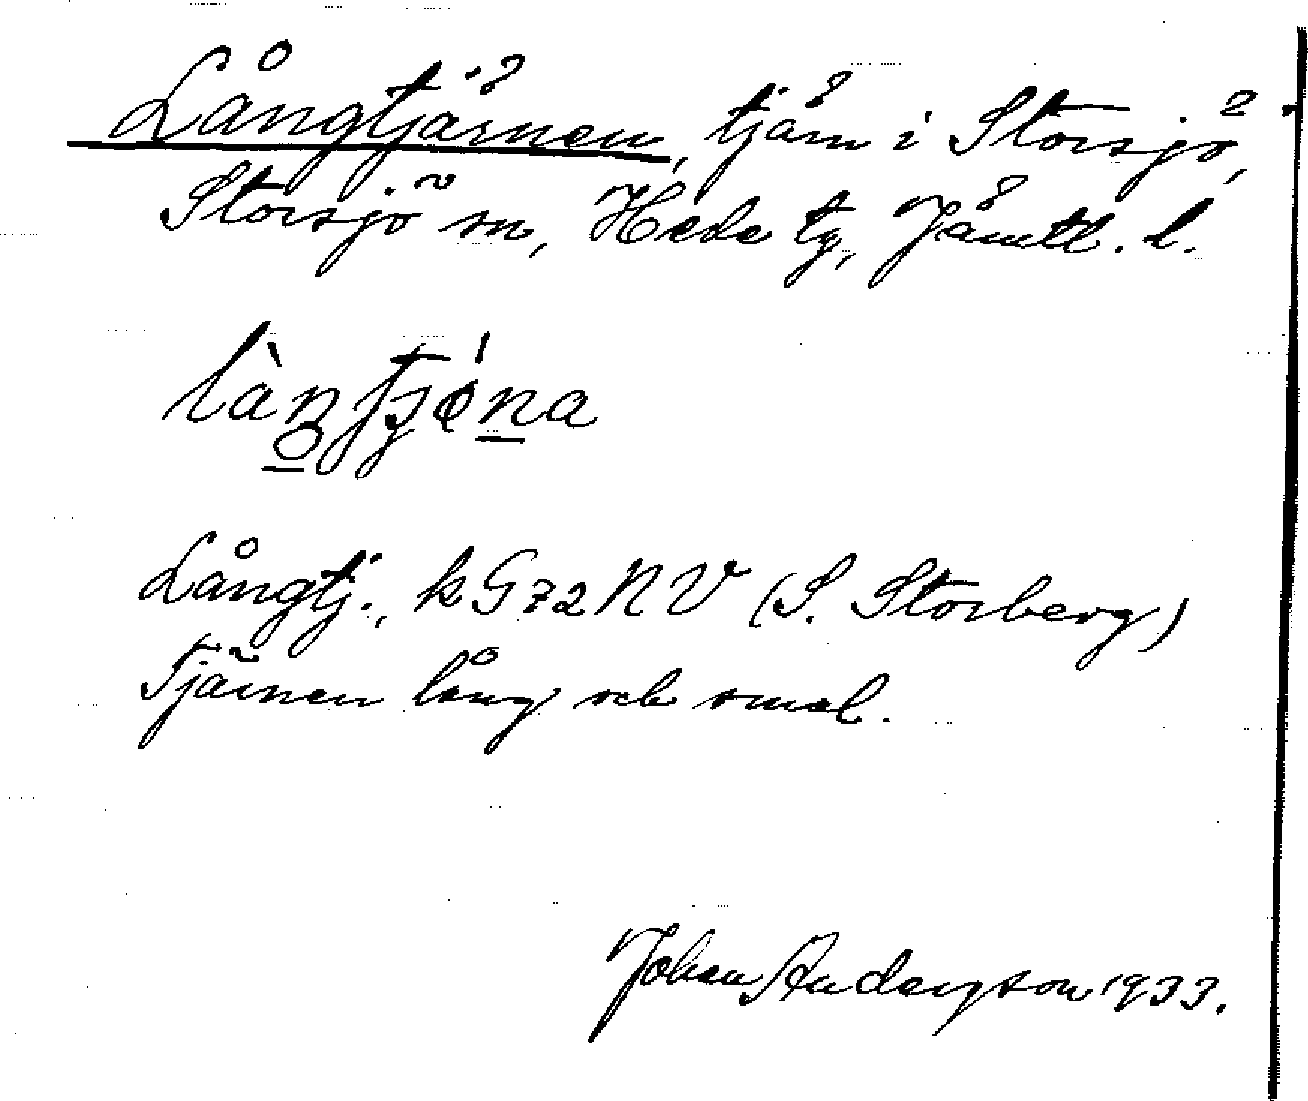 Långtjärnen, tjärn i Storsjö,
Storsjö sn, Hede tg, Jämtl. l.
Långtj., k G72NV (S. Storberg)
Tjärnen lång och smal.
Johan Anderson 1933.